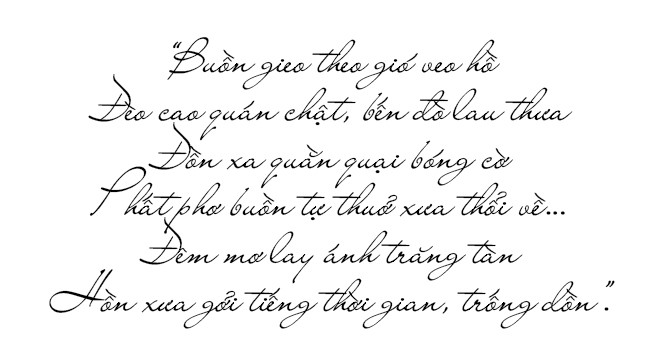 “Buồn gieo theo gió veo hồ
Đèo cao quán chật, bến đò lau thưa
Đồn xa quằn quại bóng cờ
Phất phơ buồn tự thuở xưa thổi về...
Đêm mơ lay ánh trăng tàn
Hồn xưa gởi tiếng thời gian, trống dồn”.